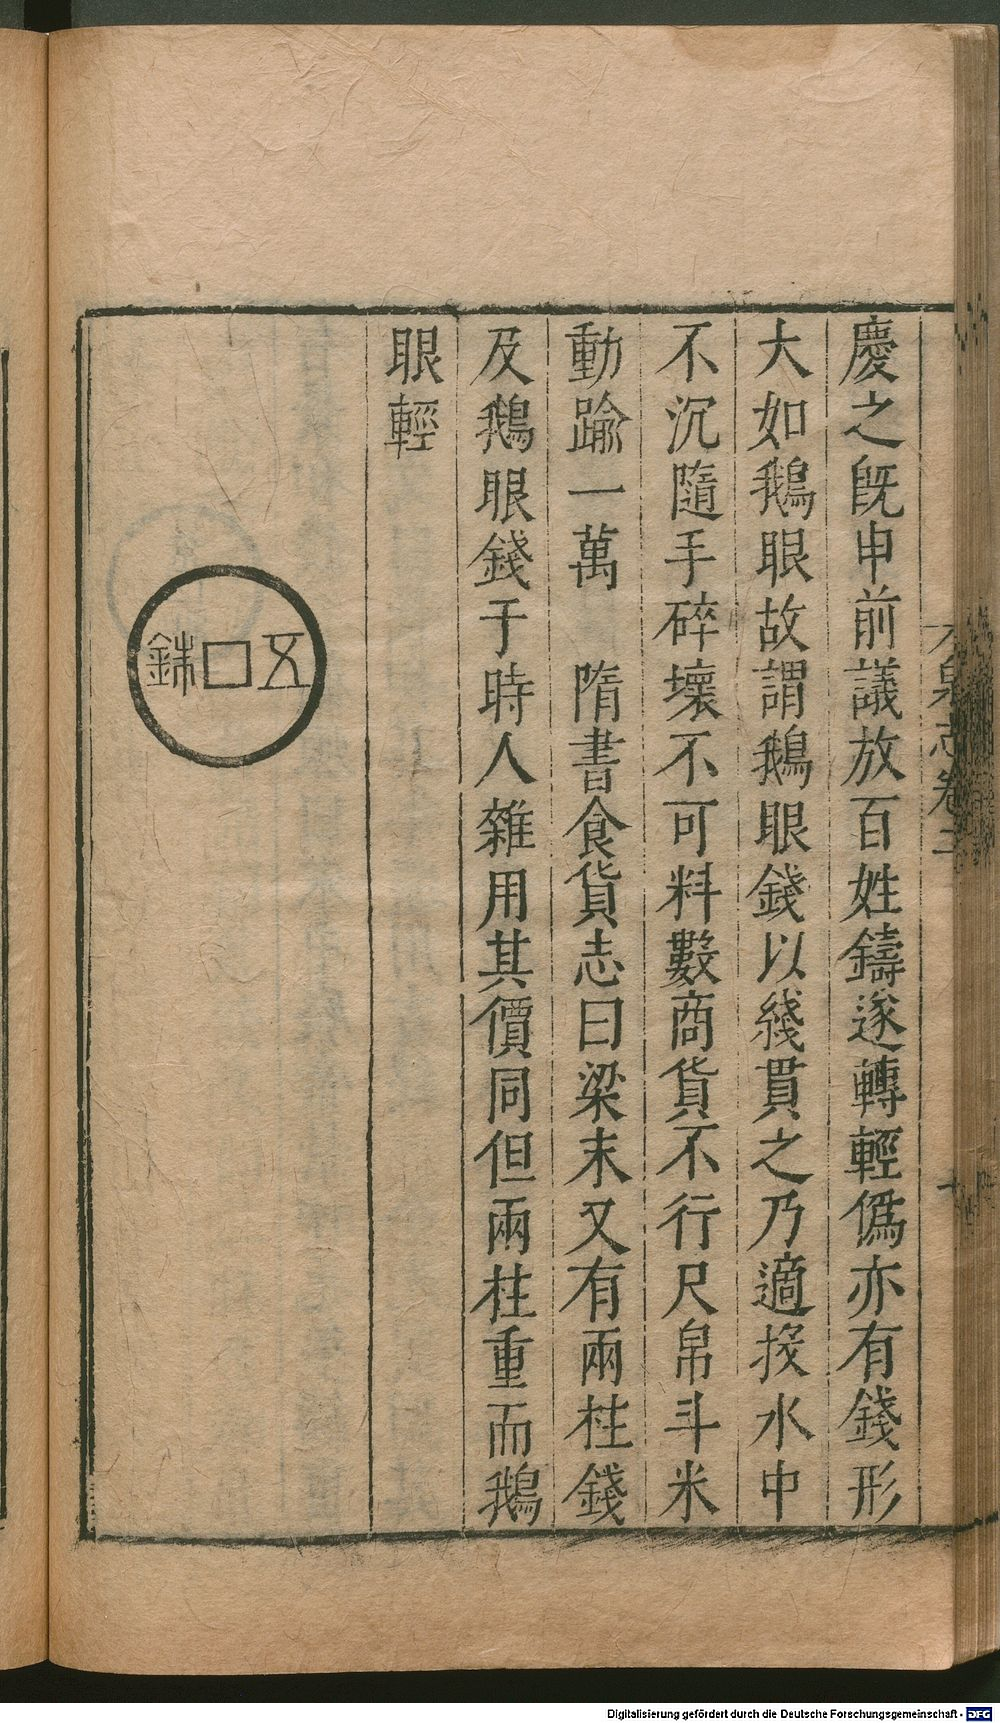 慶之旣申前議放百姓鑄遂轉輕僞亦有錢形
大如鵝眼故謂鵝眼錢以綫貫之乃適掞水中
不沉隨手碎壞不可料數商貨不行尺帛斗米
動踰一萬　隋書食貨志曰梁末又有兩柱錢
及鵝眼錢于時人雜用其價同但兩柱重而鵝
眼輕
五銖
泉志卷
Digitalisierung gefördert durch die Deutsche Forschungsgemeinschaft - DFG